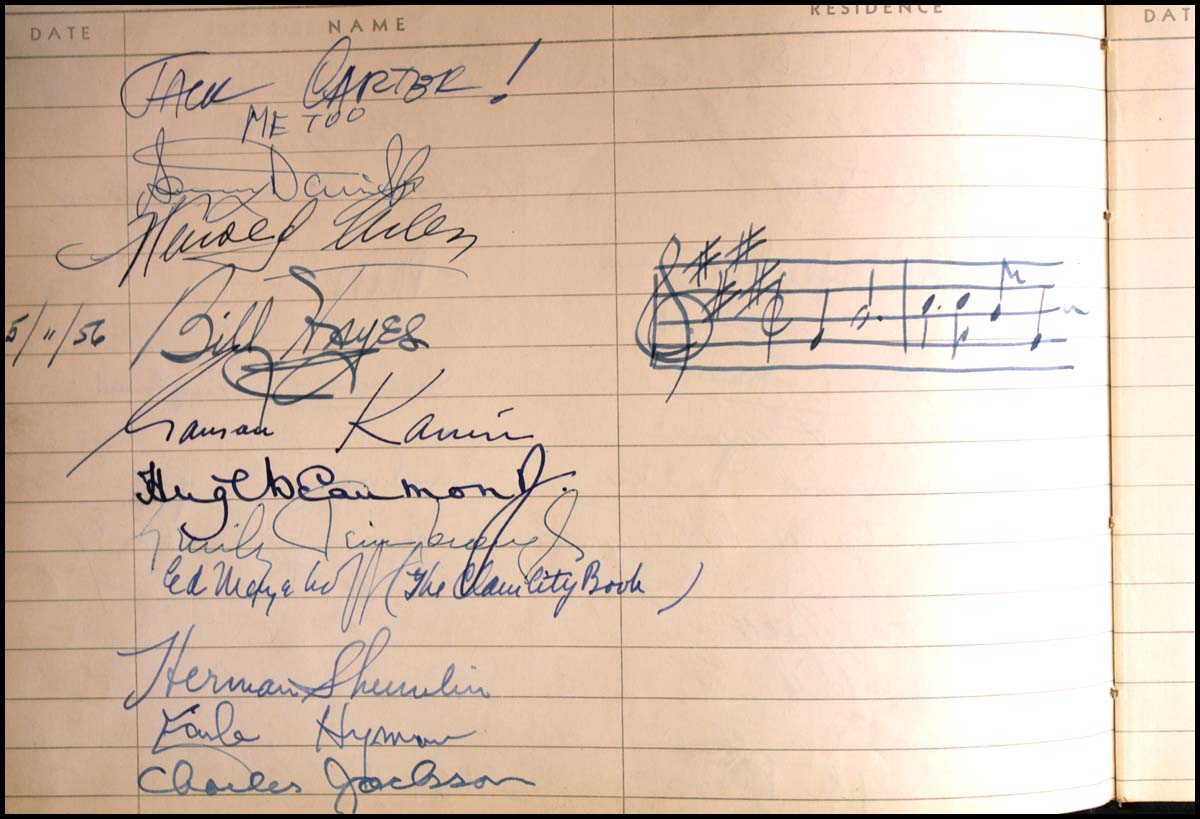 DATE NAME RESIDENCE DAT
JACK CARTER!
ME TOO
Sammy Davis Jr
Harold Arlen
5/11/56 Bill Hayes
Garson Kanin
Hugh Beaumont.
Emily Kimbrough
Ed Meyerhoff (The Clamility Book)
Herman Shumlin
Earle Hyman
Charles Jackson